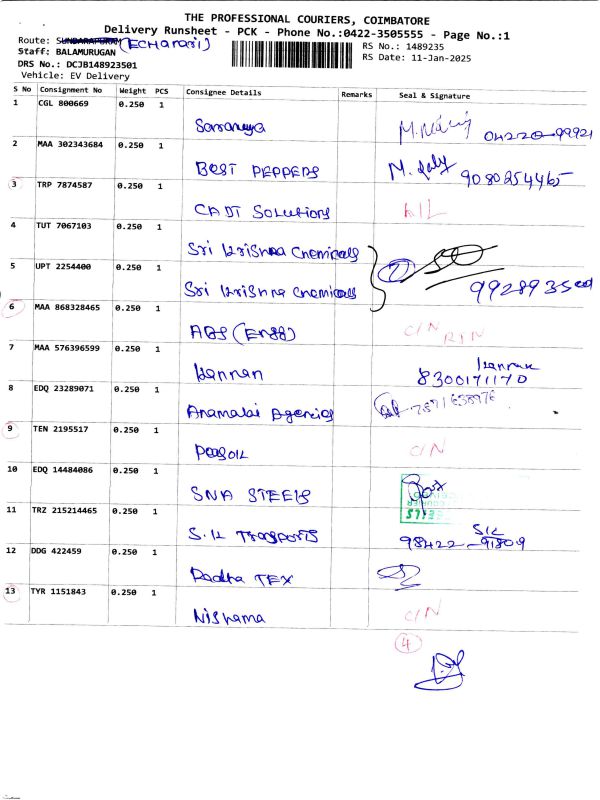 THE PROFESSIONAL COURIERS, COIMBATORE
Delivery Runsheet - PCK - Phone No.:0422-3505555 - Page No.:1
Route: SUNDARAPURAM (ECHANARI) RS No.: 1489235
Staff: BALAMURUGAN RS Date: 11-Jan-2025
DRS No.: DCJB148923501
Vehicle: EV Delivery
S No Consignment No Weight PCS Consignee Details Remarks Seal & Signature
1 CGL 800669 0.250 1
Saranya
2 MAA 302343684 0.250 1
BEST PEPPERS 9080254465
3 TRP 7874587 0.250 1
CADT Solutions
4 TUT 7067103 0.250 1
Sri Krishna Chemicals
5 UPT 2254400 0.250 1
Sri Krishna Chemicals
6 MAA 868328465 0.250 1
ABS (Engg) C/N
7 MAA 576396599 0.250 1
Kannan 8300171170
8 EDQ 23289071 0.250 1
Anamalai Agencies
9 TEN 2195517 0.250 1
C/N
10 EDQ 14484086 0.250 1
SNA STEELS
11 TRZ 215214465 0.250 1
S.K Transports 98422-91809
12 DDG 422459 0.250 1
Radha TEX
13 TYR 1151843 0.250 1
Nishama C/N
4